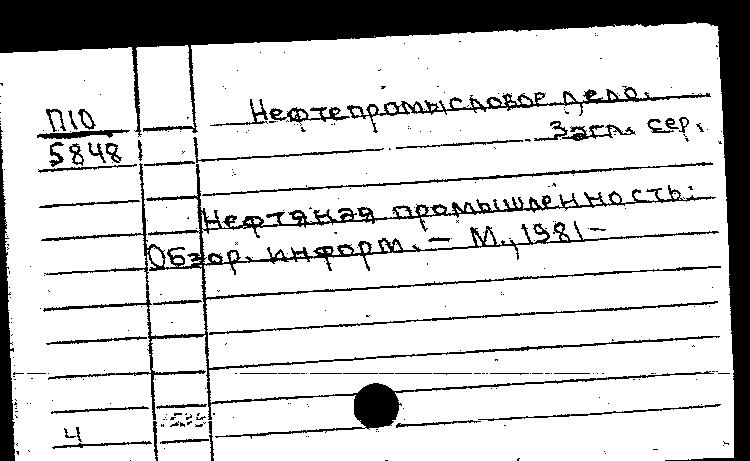 П10
5848
Нефтепромысловое дело.
Загл. сер.
Нефтяная промышленность:
Обзор. информ. — М., 1981 –
4